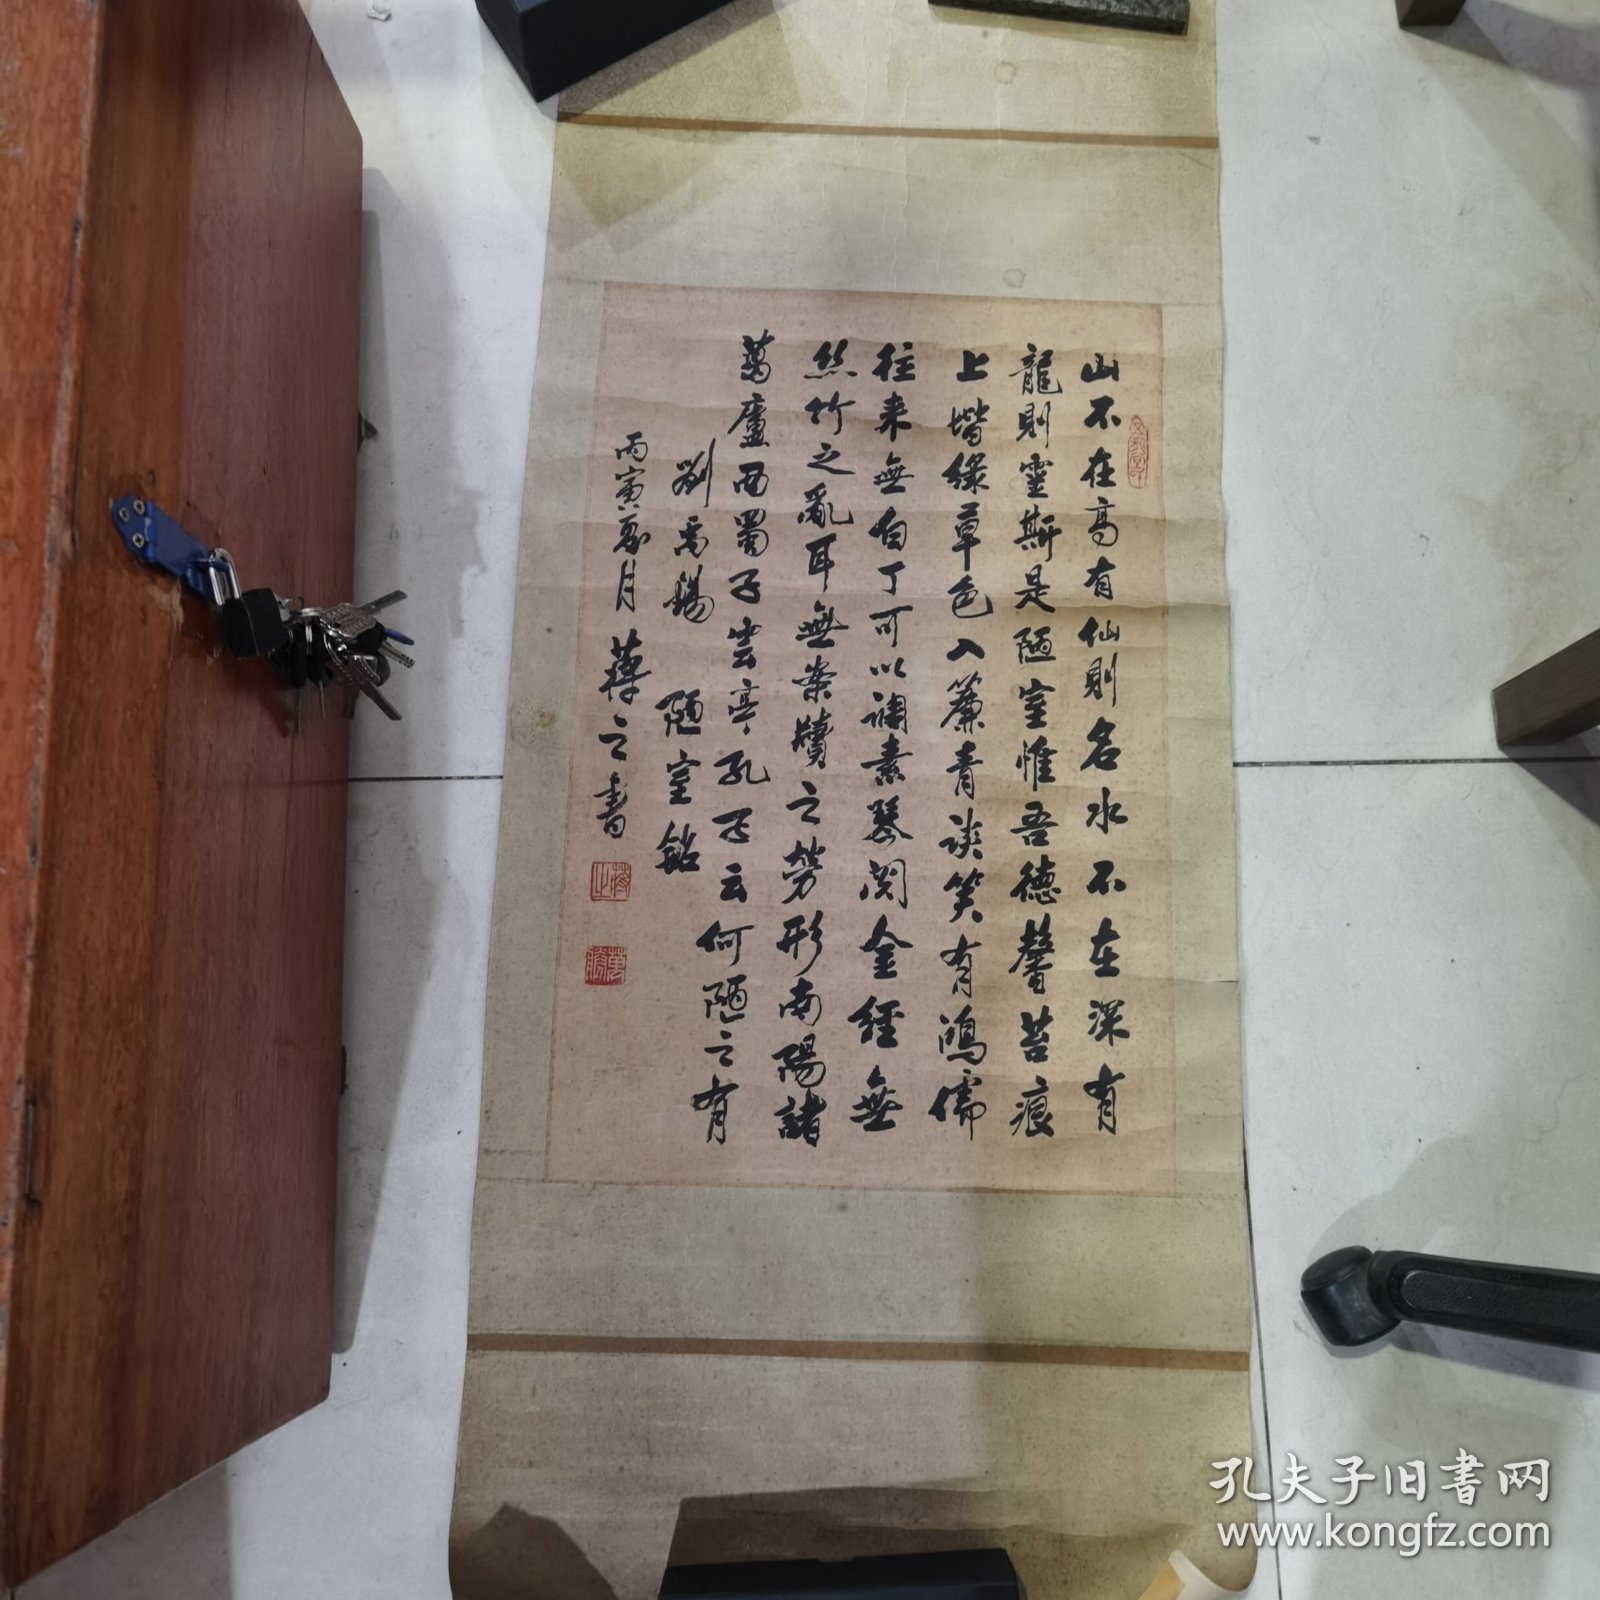 山不在高有仙則名水不在深有
龍則靈斯是陋室惟吾德馨苔痕
上堦緑草色入簾青談笑有鴻儒
往来無白丁可以調素琴閱金經無
絲竹之亂耳無案牘之勞形南陽諸
葛廬西蜀子雲亭孔子云何陋之有
劉禹錫 陋室銘
丙寅夏月 蔣之書
孔夫子旧书网
www.kongfz.com